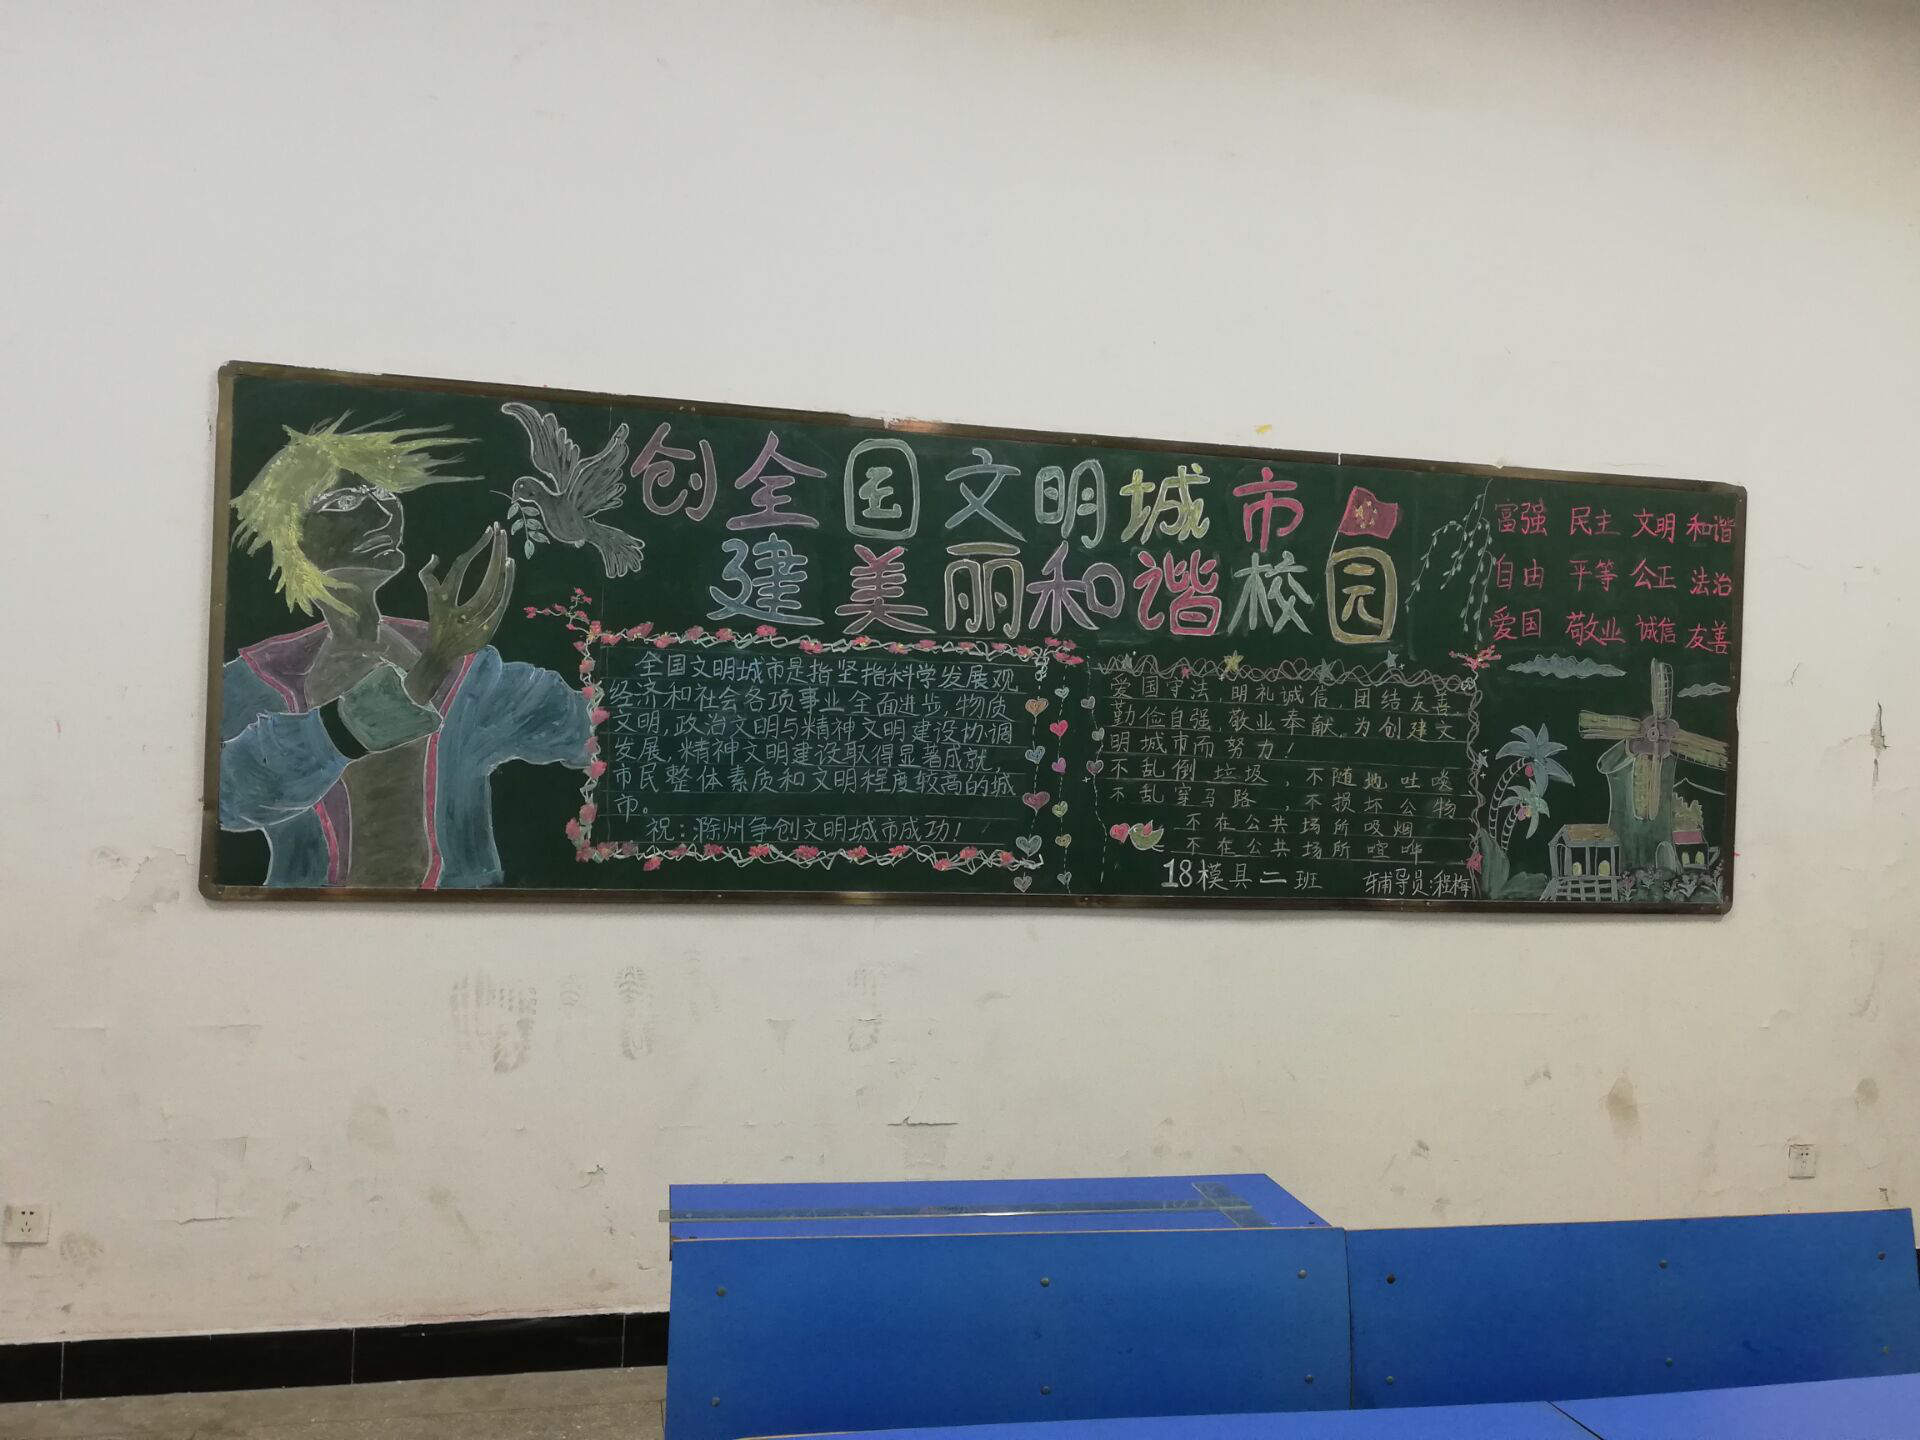 创全国文明城市
建美丽和谐校园
全国文明城市是指坚指科学发展观
经济和社会各项事业全面进步,物质
文明,政治文明与精神文明建设协调
发展,精神文明建设取得显著成就,
市民整体素质和文明程度较高的城
市。
祝:滁州争创文明城市成功!
爱国守法,明礼诚信,团结友善
勤俭自强,敬业奉献,为创建文
明城市而努力!
不乱倒垃圾,不随地吐痰
不乱穿马路,不损坏公物
不在公共场所吸烟
不在公共场所喧哗
18模具二班 辅导员:程梅
富强 民主 文明 和谐
自由 平等 公正 法治
爱国 敬业 诚信 友善